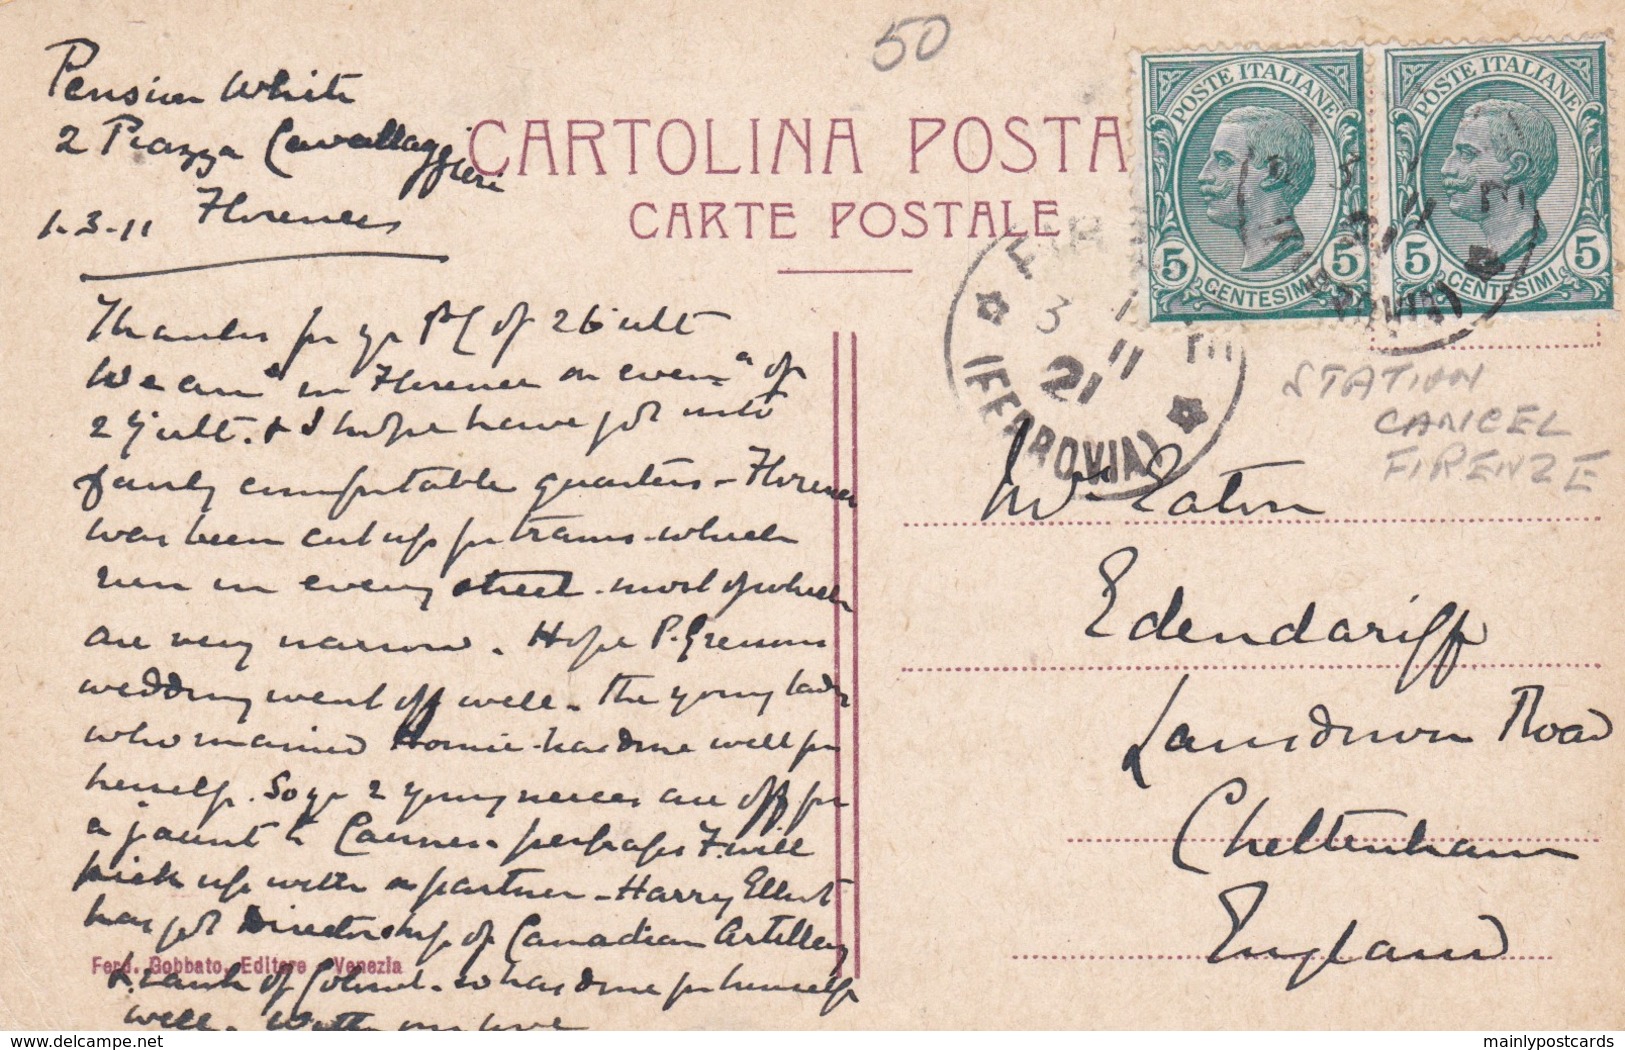 50
Pension White
2 Piazza Cavallaggieri
1.3.11 Florence
CARTOLINA POSTA
CARTE POSTALE
POSTE ITALIANE
5 CENTESIMI 5
POSTE ITALIANE
5 CENTESIMI 5
(FERROVIA)
3 11
STATION
CANCEL
FIRENZE
Thanks for yr PC of 26 ult
We arrd in Florence on eveng of
27 ult. & I hope have got into
fairly comfortable quarters - Florence
has been cut up for trams which
run in every street - most of which
are very narrow. Hope P.
wedding went off well - The young lady
who married has done well for
herself. So yr 2 young nieces are off for
a jaunt to Cannes - perhaps F. will
pick up with a partner - Harry Elliot
has got Directorship of Canadian Artillery
& rank of Colonel - so has done for himself
well. With our love
Mrs Eaton
Edendariff
Lansdown Road
Cheltenham
England
Ferd. Gobbato, Editore - Venezia
www.delcampe.net
mainlypostcards